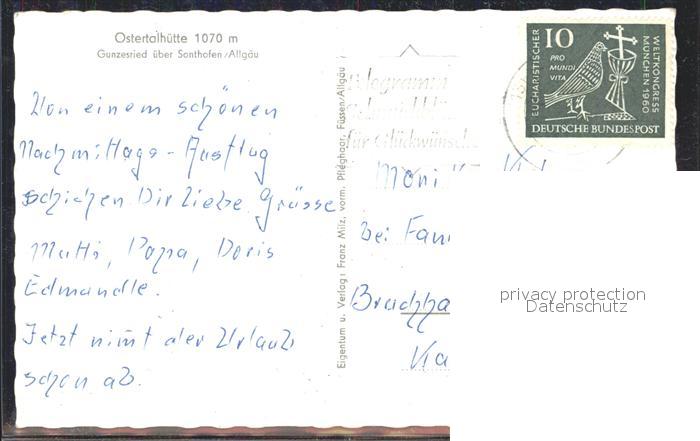 Ostertalhütte 1070 m
Gunzesried über Sonthofen/Allgäu
Von einem schönen
Nachmittags-Ausflug
schicken Dir liebe Grüsse
Mutti, Papa, Doris
Edmandle.
Jetzt nimt der Urlaub
schon ab.
Eigentum u. Verlag: Franz Milz, vorm. Pfleghaar, Füssen/Allgäu
für Glückwünsche
bei Fam
EUCHARISTISCHER
WELTKONGRESS
MÜNCHEN 1960
10
PRO
MUNDI
VITA
DEUTSCHE BUNDESPOST
privacy protection
Datenschutz